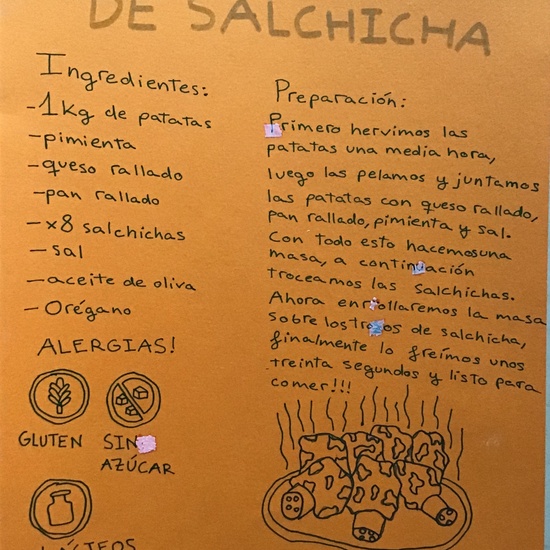 DE SALCHICHA
Ingredientes:
-1Kg de patatas
-pimienta
-queso rallado
-pan rallado
-x8 salchichas
-sal
-aceite de oliva
-Orégano
ALERGIAS!
GLUTEN
SIN
AZÚCAR
LÁCTEOS
Preparación:
Primero hervimos las
patatas una media hora,
luego las pelamos y juntamos
las patatas con queso rallado,
pan rallado, pimienta y sal.
Con todo esto hacemosuna
masa, a continuación
troceamos las Salchichas.
Ahora enrollaremos la masa
sobre los trozos de salchicha,
finalmente lo freímos unos
treinta segundos y listo para
comer!!!